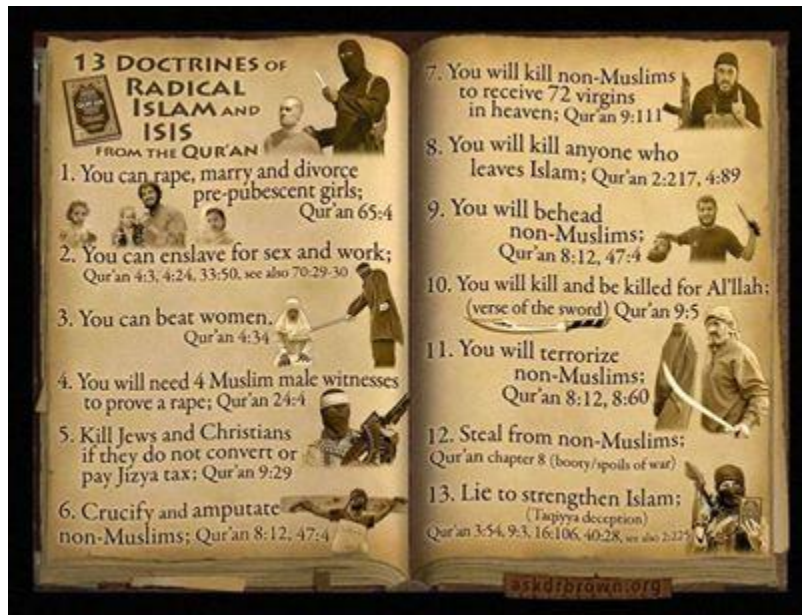 13 DOCTRINES OF
RADICAL
ISLAM AND
ISIS
FROM THE QUR'AN
1. You can rape, marry and divorce
pre-pubescent girls;
Qur'an 65:4
2. You can enslave for sex and work;
Qur'an 4:3, 4:24, 33:50, see also 70:29-30
3. You can beat women.
Qur'an 4:34
4. You will need 4 Muslim male witnesses
to prove a rape; Qur'an 24:4
5. Kill Jews and Christians
if they do not convert or
pay Jizya tax; Qur'an 9:29
6. Crucify and amputate
non-Muslims; Qur'an 8:12, 47:4
7. You will kill non-Muslims
to receive 72 virgins
in heaven; Qur'an 9:111
8. You will kill anyone who
leaves Islam; Qur'an 2:217, 4:89
9. You will behead
non-Muslims;
Qur'an 8:12, 47:4
10. You will kill and be killed for Al'llah;
(verse of the sword) Qur'an 9:5
11. You will terrorize
non-Muslims;
Qur'an 8:12, 8:60
12. Steal from non-Muslims;
Qur'an chapter 8 (booty/spoils of war)
13. Lie to strengthen Islam;
(Taqiyya deception)
Qur'an 3:54, 9:3, 16:106, 40:28, see also 2:225
askdrbrown.org